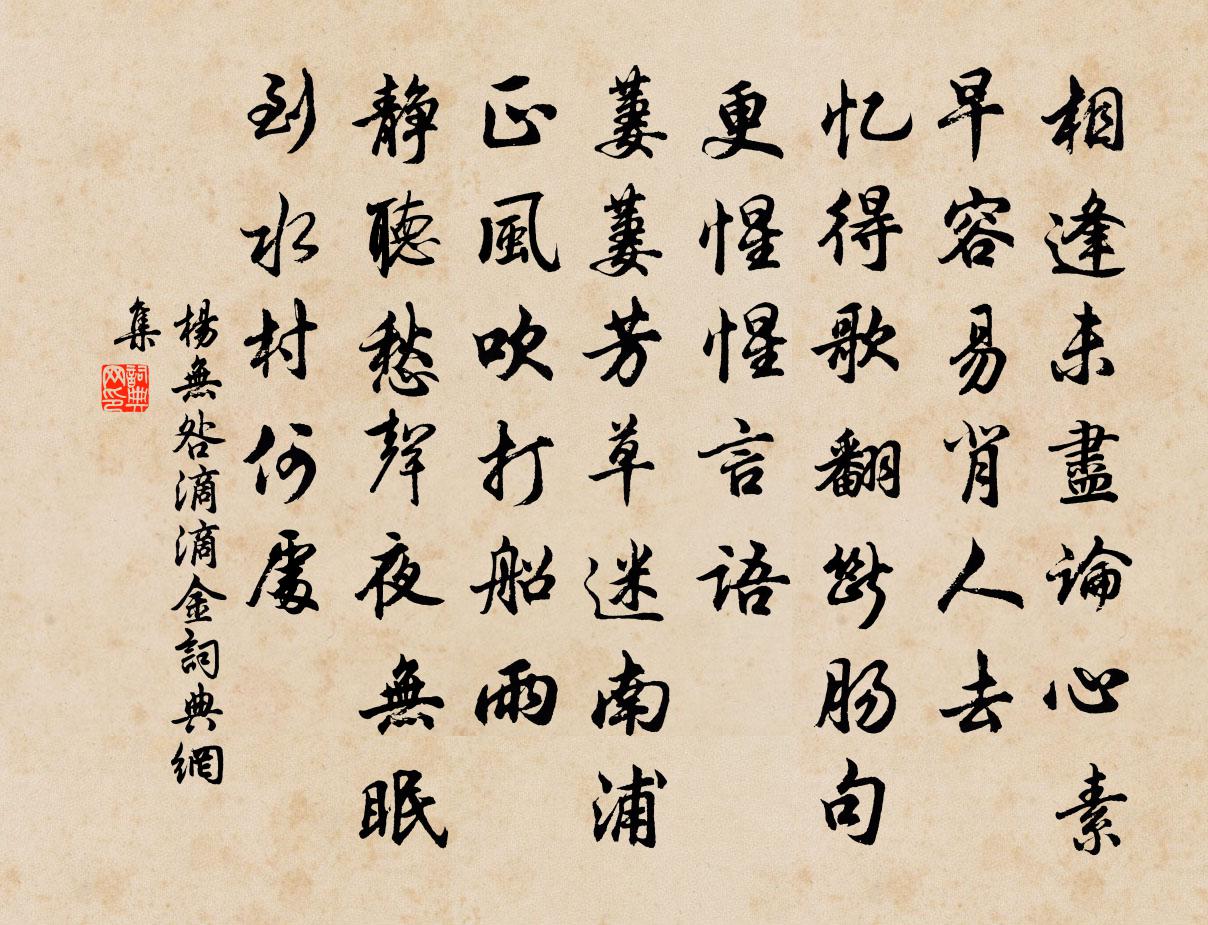 相逢未盡論心素
早容易背人去
忆得歌翻斷肠句
更惺惺言語
萋萋芳草迷南浦
正風吹打船雨
静聽愁聲夜無眠
到水村何處
楊無咎滴滴金詞典網
集
詞典網印